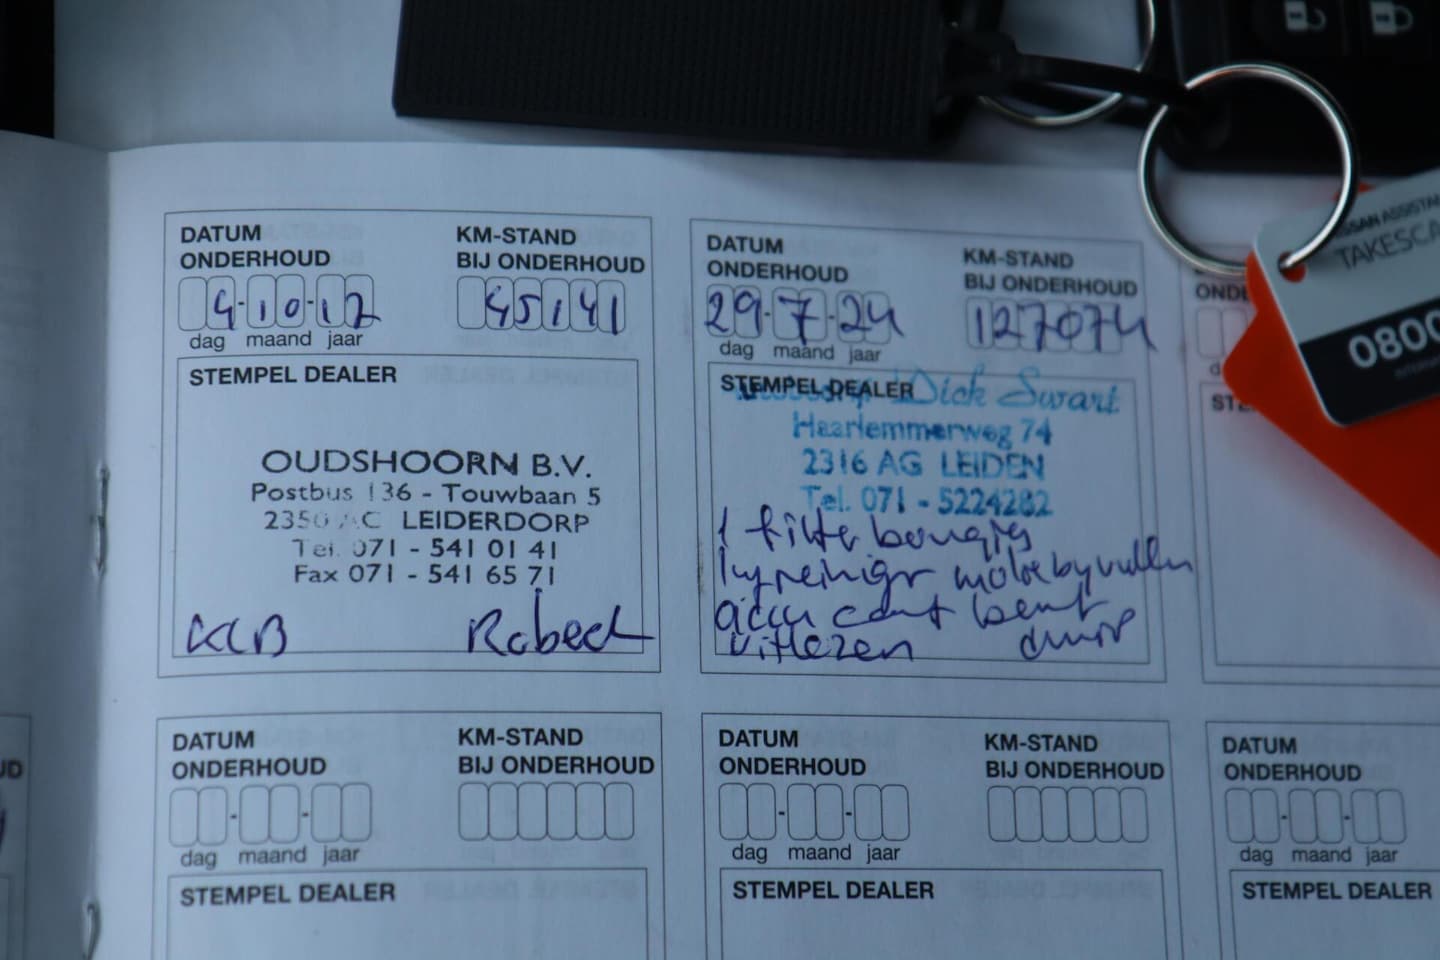 DATUM
ONDERHOUD
KM-STAND
BIJ ONDERHOUD
4-10-12
45141
dag maand jaar
STEMPEL DEALER
OUDSHOORN B.V.
Postbus 136 - Touwbaan 5
2350 AC LEIDERDORP
Tel. 071 - 541 01 41
Fax 071 - 541 65 71
DATUM
ONDERHOUD
KM-STAND
BIJ ONDERHOUD
29-7-24
127074
dag maand jaar
STEMPEL DEALER
Dick Swart
Haarlemmerweg 74
2316 AG LEIDEN
Tel. 071 - 5224282
1 filter bougies
motor byvullen
accu
uitlezen
OND
ST
SSAN ASSISTA
TAKESCA
0800
DATUM
ONDERHOUD
KM-STAND
BIJ ONDERHOUD
dag maand jaar
STEMPEL DEALER
DATUM
ONDERHOUD
KM-STAND
BIJ ONDERHOUD
dag maand jaar
STEMPEL DEALER
DATUM
ONDERHOUD
dag maand jaar
STEMPEL DEALER